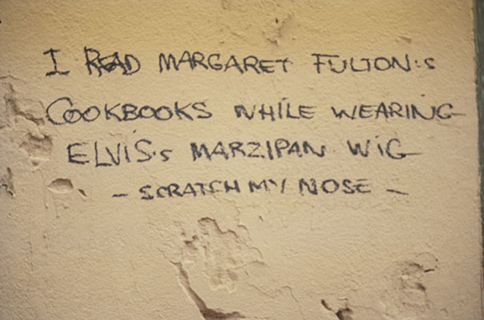 I READ MARGARET FULTON's
COOKBOOKS WHILE WEARING
ELVIS's MARZIPAN WIG
- SCRATCH MY NOSE -